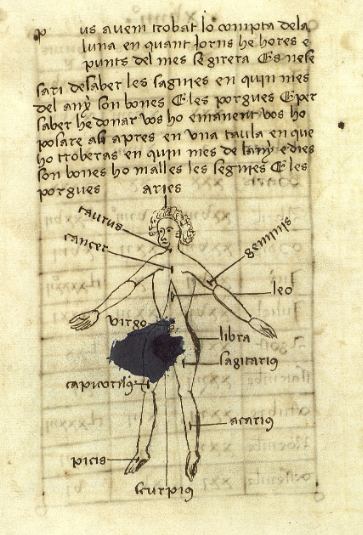 Pus avem trobat lo compta dela
luna en quant jorns he hores e
punts del mes segirera Es nese
sari de saber les sagnies en quin mes
del any son bones E les porgues E per
saber he donar vos ho emanent vos ho
posare asi apres en una taula en que
ho troberas en quin mes de lany e dies
son bones ho malles les segnies E les
porgues
aries
taurus
cancer
geminis
leo
virgo
libra
sagitarius
capicornius
acarius
picis
scurpius